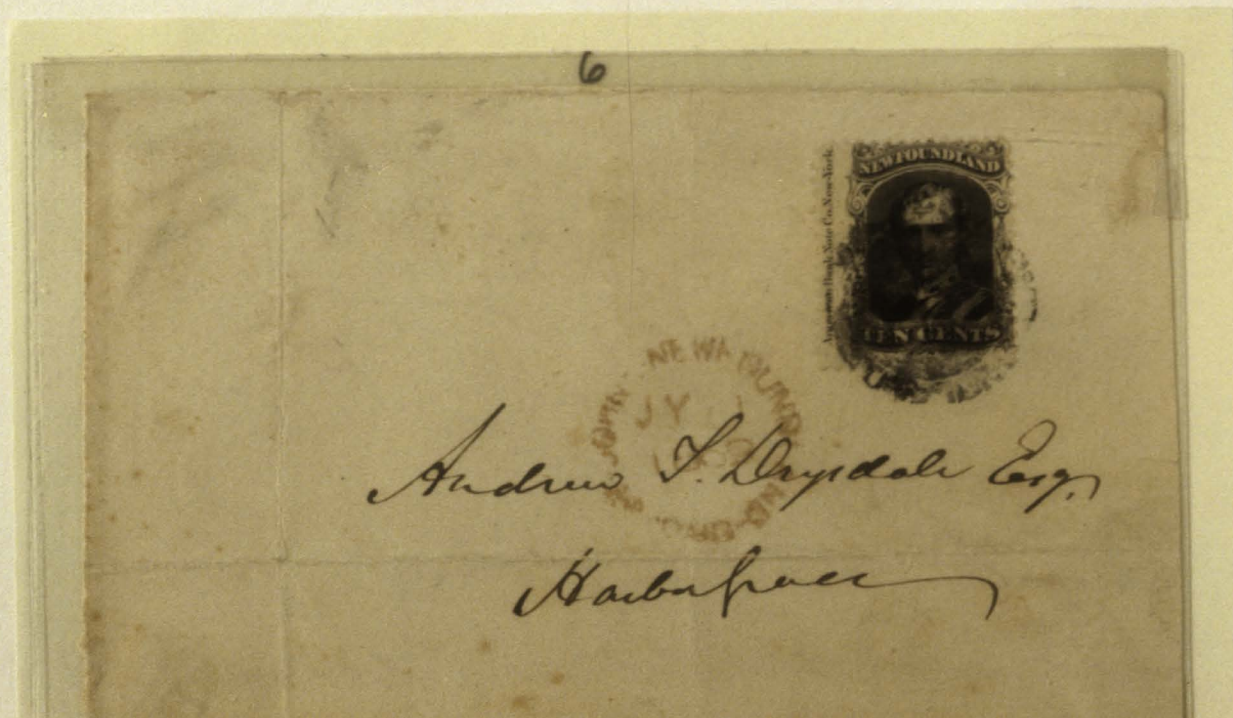 6
NEWFOUNDLAND
American Bank Note Co. New-York.
TEN CENTS
JY
Andrew T. Drysdale Esq.
Harbor Grace